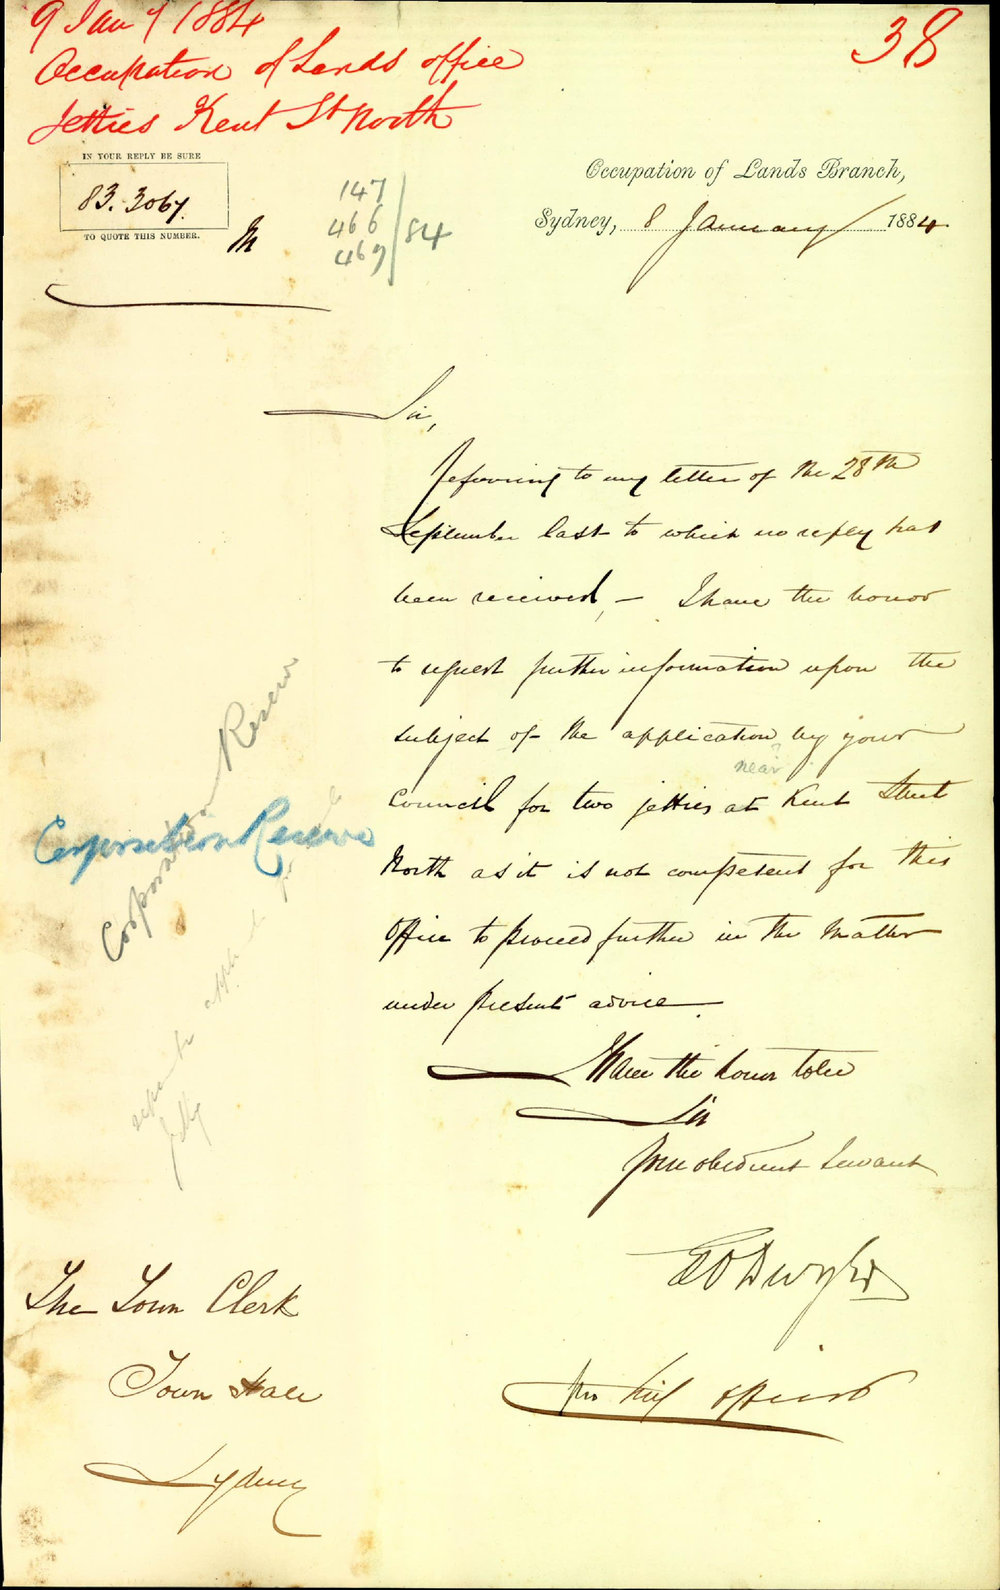 9 Jany 1884
Occupation of Lands office
Jetties Kent St North
38
IN YOUR REPLY BE SURE
83.3067.
TO QUOTE THIS NUMBER.
M
147
466
467
84
Occupation of Lands Branch,
Sydney, 8 January 1884
Sir,
Referring to my letter of the 28th
September last to which no reply has
been received, — I have the honor
to request further information upon the
subject of the application by your
near
Council for two jetties at Kent Street
North as it is not competent for this
Office to proceed further in the matter
under present advice.
Corporation Reserve
Corporation Reserve
jetty
I have the honor to be
Sir
Your obedient Servant
The Town Clerk
Town Hall
Sydney